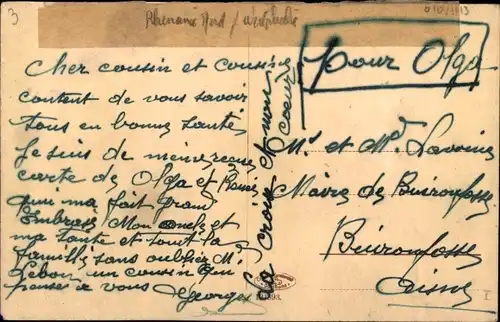 3
Rhenanie Nord / westphalie
Cher cousin et cousine
content de vous savoir
tous en bonne santé,
Je suis de même reçu
carte de Olga et René
qui m'a fait grand
Embrasse Mon oncle et
ma tante et tout la
famille sans oublier Mr
Lebon, un cousin qui
pense a vous Georges
La croix et mon
coeur
pour Olga
Mr et Md Lavoine
Maire de Buironfosse
Buironfosse
Aisne